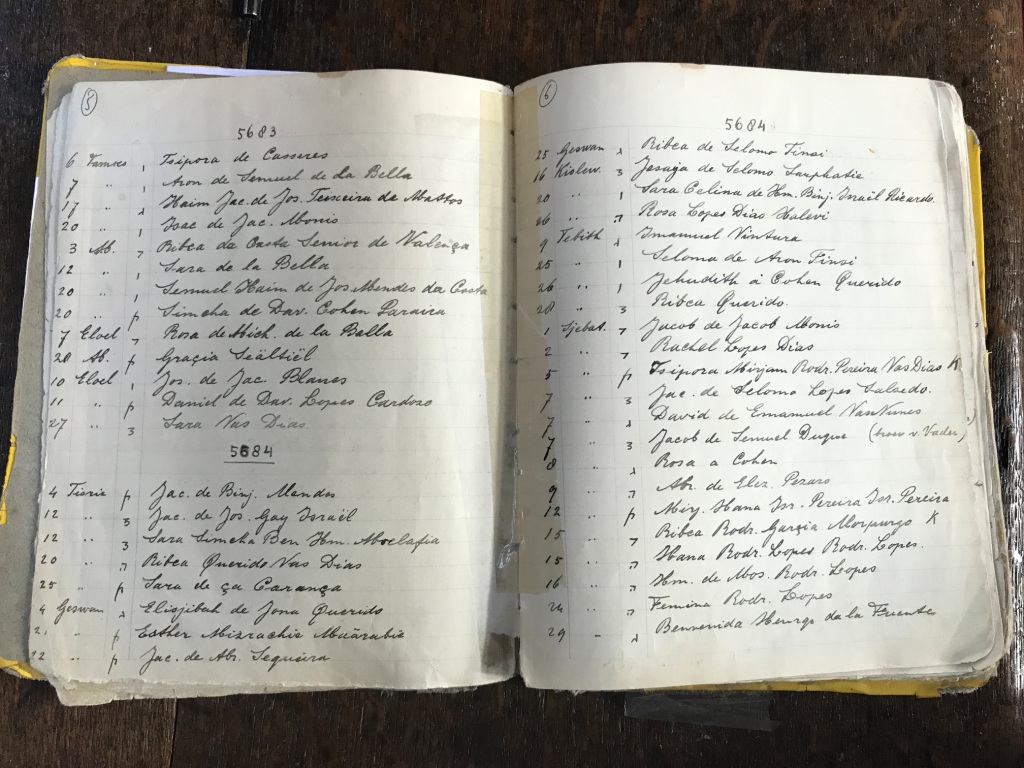 5
5683
6 Tamoes 1 Tsipora de Casseres
7 " 1 Aron de Semuel de la Bella
17 " ג Haim Jac. de Jos. Teixeira de Mattos
20 " 1 Isac de Jac. Monis
3 Ab. ד Ribca da Costa Senior de Valença
12 " 1 Sara de la Bella
20 " 1 Semuel Haim de Jos Mendes da Costa
20 " p Simcha de Dav. Cohen Paraira
7 Eloel ד Rosa de Mich. de la Bella
28 Ab. p Gracia Seältiël
10 Eloel ד Jos. de Jac. Blanes
11 " p Daniel de Dav. Lopes Cardozo
27 " 3 Sara Vas Dias
5684
4 Tisrie p Jac. de Binj. Mendes
12 " 3 Jac. de Jos. Gay Israël
12 " 3 Sara Simcha Ben Hm. Aboelafia
20 " ה Ribca Querido Vas Dias
25 " p Sara de ça Carança
4 Geswan ג Elisjibah de Jona Querido
" p Esther Mizrachie Muärabie
22 " p Jac. de Abr. Sequeira
6
5684
25 Geswan ג Ribca de Selomo Finsi
16 Kislew. 3 Jesaja de Selomo Sarphatie
20 " 1 Sara Celina de Hm. Binj. Israël Ricardo.
26 " ה Rosa Lopes Dias Halevi
9 Tebith ג Imanuel Vintura
25 " 1 Seloma de Aron Finsi
26 " 1 Jehudith á Cohen Querido
28 " 3 Ribca Querido.
1 Sjebat. ד Jacob de Jacob Monis
2 " ד Rachel Lopes Dias
5 " p Tsipora Mirjam Rodr. Pereira Vas Dias K
7 " 3 Jac. de Selomo Lopes Salzedo.
7 " ג David de Emanuel Van Nunes
7 " 3 Jacob de Semuel Duque (broer v. Vader)
8 " ג Rosa a Cohen
9 " ה Abr. de Elez. Pezaro
12 " p Mirj. Hana Jsr. Pereira Jsr. Pereira
15 " ד Ribca Rodr. Garçia Morpurgo K
15 " ה Hana Rodr. Lopes Rodr. Lopes.
16 " ה Hm. de Mos. Rodr. Lopes
24 " ה Femina Rodr. Lopes
29 " ג Benvenida de la Fuente